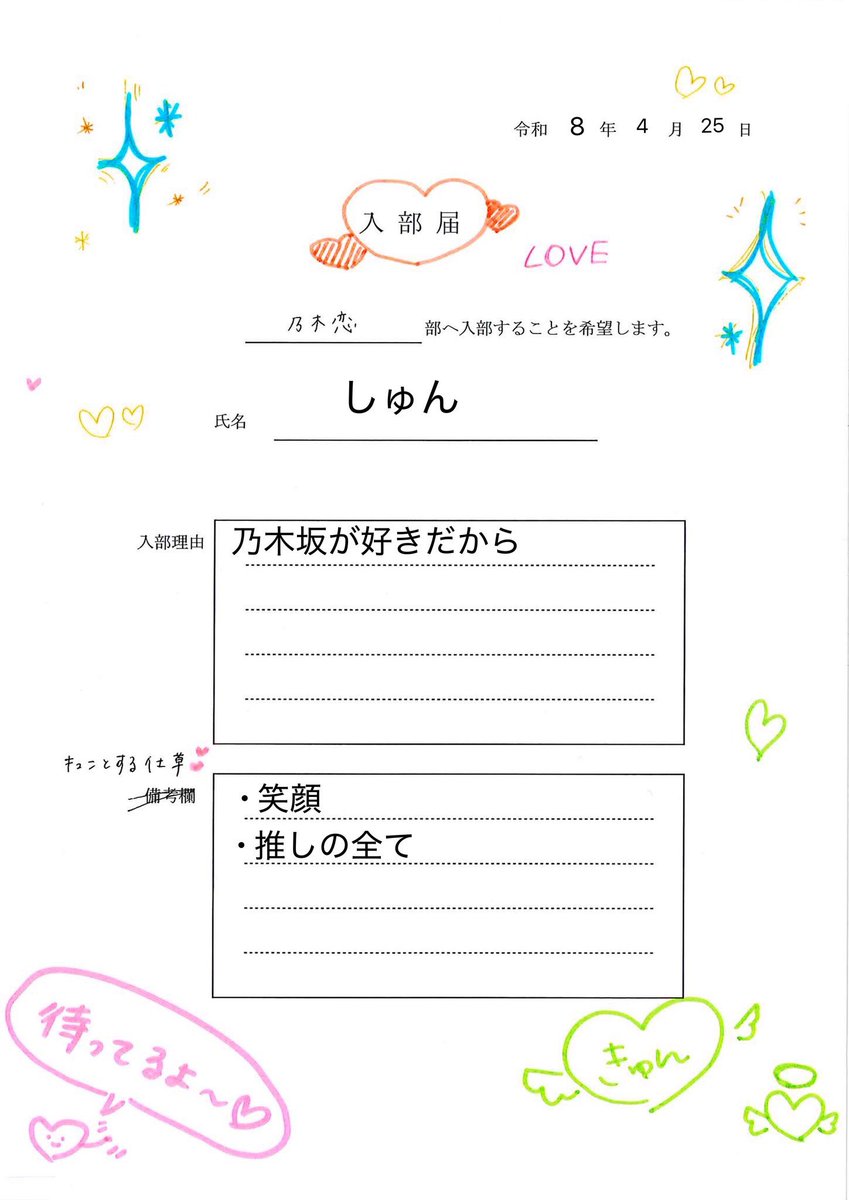 令和 8 年 4 月 25 日
入部届
LOVE
乃木恋 部へ入部することを希望します。
氏名 しゅん
入部理由 乃木坂が好きだから
キュンとする仕草
備考欄
・笑顔
・推しの全て
待ってるよ〜
きゅん